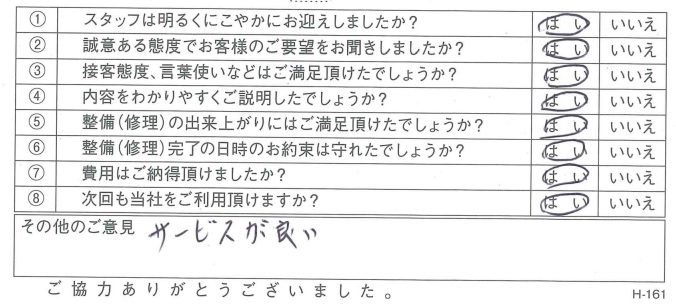 ① スタッフは明るくにこやかにお迎えしましたか? はい いいえ
② 誠意ある態度でお客様のご要望をお聞きしましたか? はい いいえ
③ 接客態度、言葉使いなどはご満足頂けたでしょうか? はい いいえ
④ 内容をわかりやすくご説明したでしょうか? はい いいえ
⑤ 整備(修理)の出来上がりにはご満足頂けたでしょうか? はい いいえ
⑥ 整備(修理)完了の日時のお約束は守れたでしょうか? はい いいえ
⑦ 費用はご納得頂けましたか? はい いいえ
⑧ 次回も当社をご利用頂けますか? はい いいえ
その他のご意見 サービスが良い
ご協力ありがとうございました。 H-161